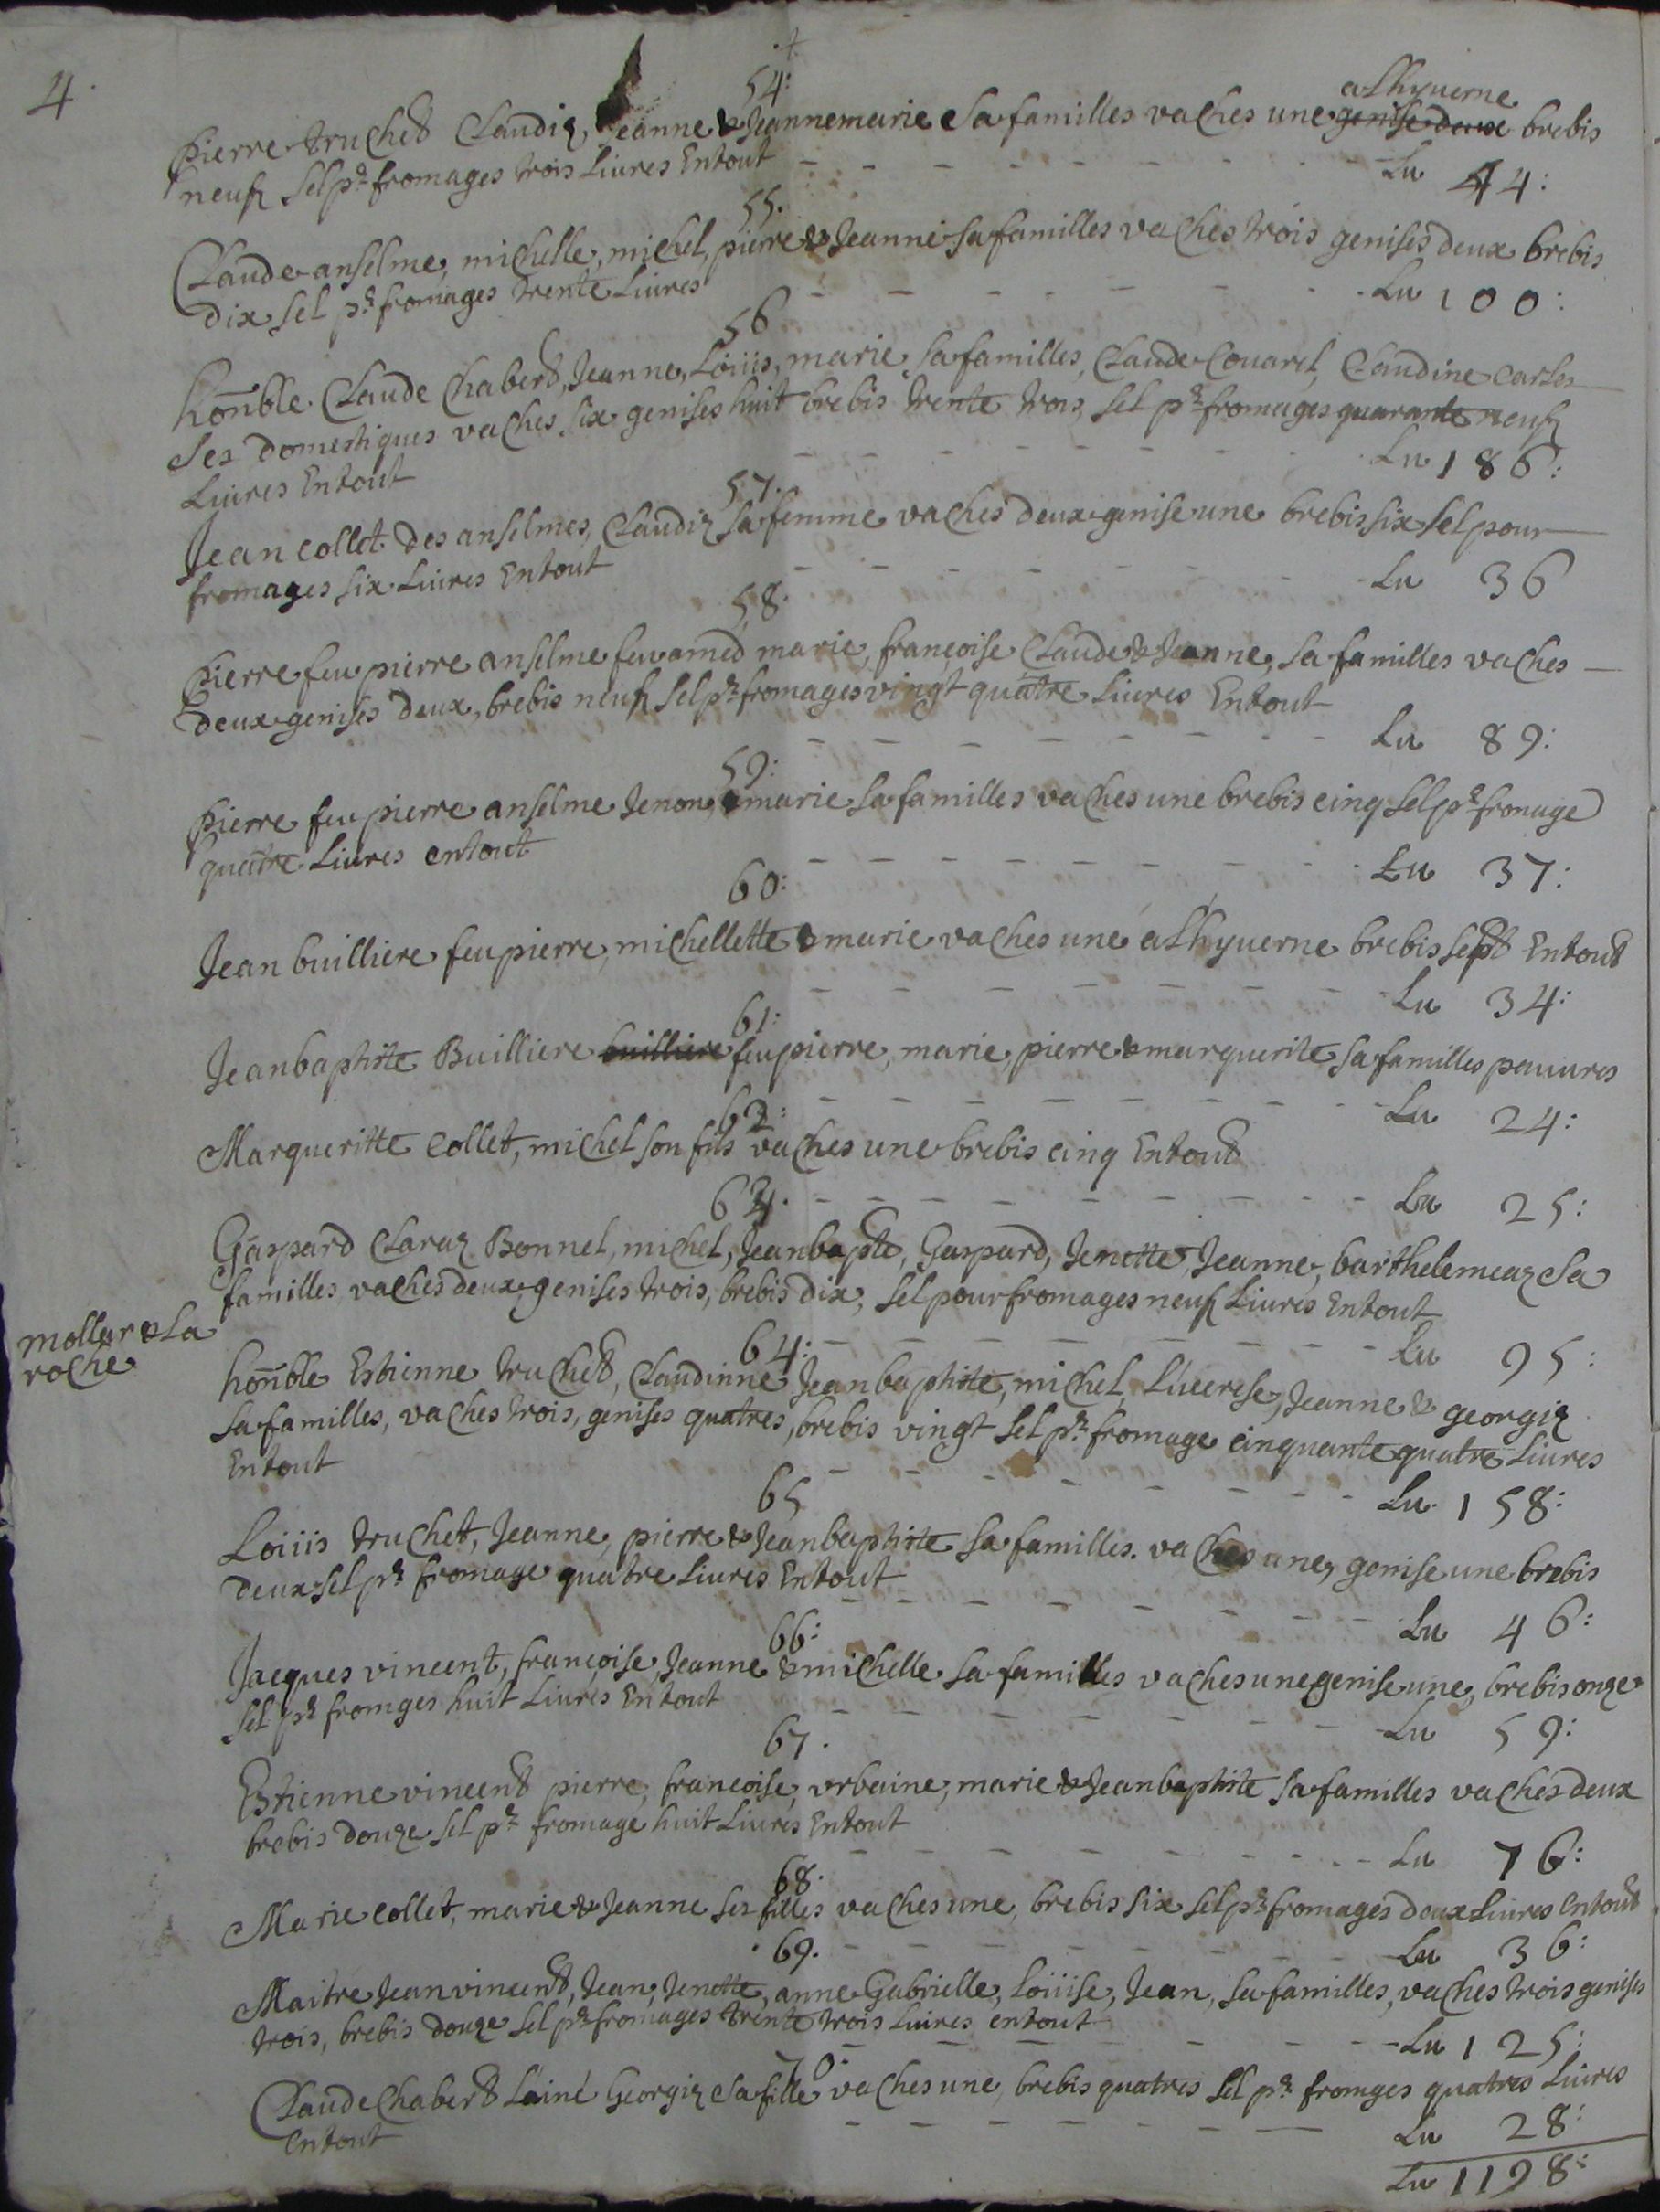 4.
54:
alhyuerne
pierre truchet Claudiz, Jeanne & Jeannemarie sa familles vaches une genise deux brebis
neufz sel pr fromages trois Liures Entout
Lu 44:
55.
Claude anselme, michelle, michel, pierre & Jeanne sa familles vaches trois genises deux brebis
dix sel pr fromages trente Liures
Lu 100:
56
honnble Claude Chabert, Jeanne, Loüis, marie sa familles, Claude Couarel, Claudine carles
ses domestiques vaches six genises huit brebis trente trois, sel pr fromages quarante neufz
Liures Entout
Lu 186:
57.
Jean collet des anselmes, Claudiz sa femme vaches deux genise une brebis six sel pour
fromages six Liures Entout
Lu 36
58.
pierre feu pierre anselme feu amed marie, françoise Claude & Jeanne, sa familles vaches
deux genises deux, brebis neufz sel pr fromages vingt quatre Liures Entout
Lu 89:
59:
pierre feu pierre anselme Jenon, marie sa familles vaches une brebis cinq sel pr fromage
quattre Liures entout
Lu 37:
60:
Jean builliere feu pierre, michellette & marie vaches une alhyuerne brebis sept Entout
Lu 34:
61:
Jeanbaptiste Builliere builliere feu pierre, marie, pierre & marguerite sa familles pauures
Lu 24:
62:
Margueritte Collet, michel son fils vaches une brebis cinq Entout
Lu 25:
63.
Gaspard Claraz Bonnel, michel, Jeanbapte, Gaspard, Jenette, Jeanne, barthelemeaz sa
familles vaches deux genises trois, brebis dix, sel pour fromages neufz Liures Entout
Lu 95:
mollar & La
roche
64:
honnble Estienne truchet, Claudinne Jeanbaptiste, michel, Lucrese, Jeanne & georgiz
sa familles, vaches trois, genises quatres, brebis vingt sel pr fromage cinquante quatre Liures
Entout
Lu 158:
65
Loüis truchet, Jeanne, pierre & Jeanbaptiste sa familles. vaches une, genise une brebis
deux sel pr fromage quatre Liures Entout
Lu 46:
66:
Jacques vincent, françoise, Jeanne & michelle sa familles vaches une genise une, brebis onze
sel pr fromges huit Liures Entout
Lu 59:
67.
Estienne vincent pierre, françoise, vrbaine, marie & Jeanbaptiste sa familles vaches deux
brebis douze sel pr fromage huit Liures Entout
Lu 76:
68.
Marie collet, marie & Jeanne ses filles vaches une, brebis six sel pr fromages deux Liures Entout
Lu 36:
69.
Maitre Jean vincent, Jean, Jenette, anne Gabrielle, Loüise, Jean, sa familles, vaches trois genises
trois, brebis douze sel pr fromages trente trois Liures entout
Lu 125:
70:
Claude Chabert Lainé Georgiz sa fille vaches une, brebis quatres sel pr fromges quatres Liures
Entout
Lu 28:
Lu 1198: